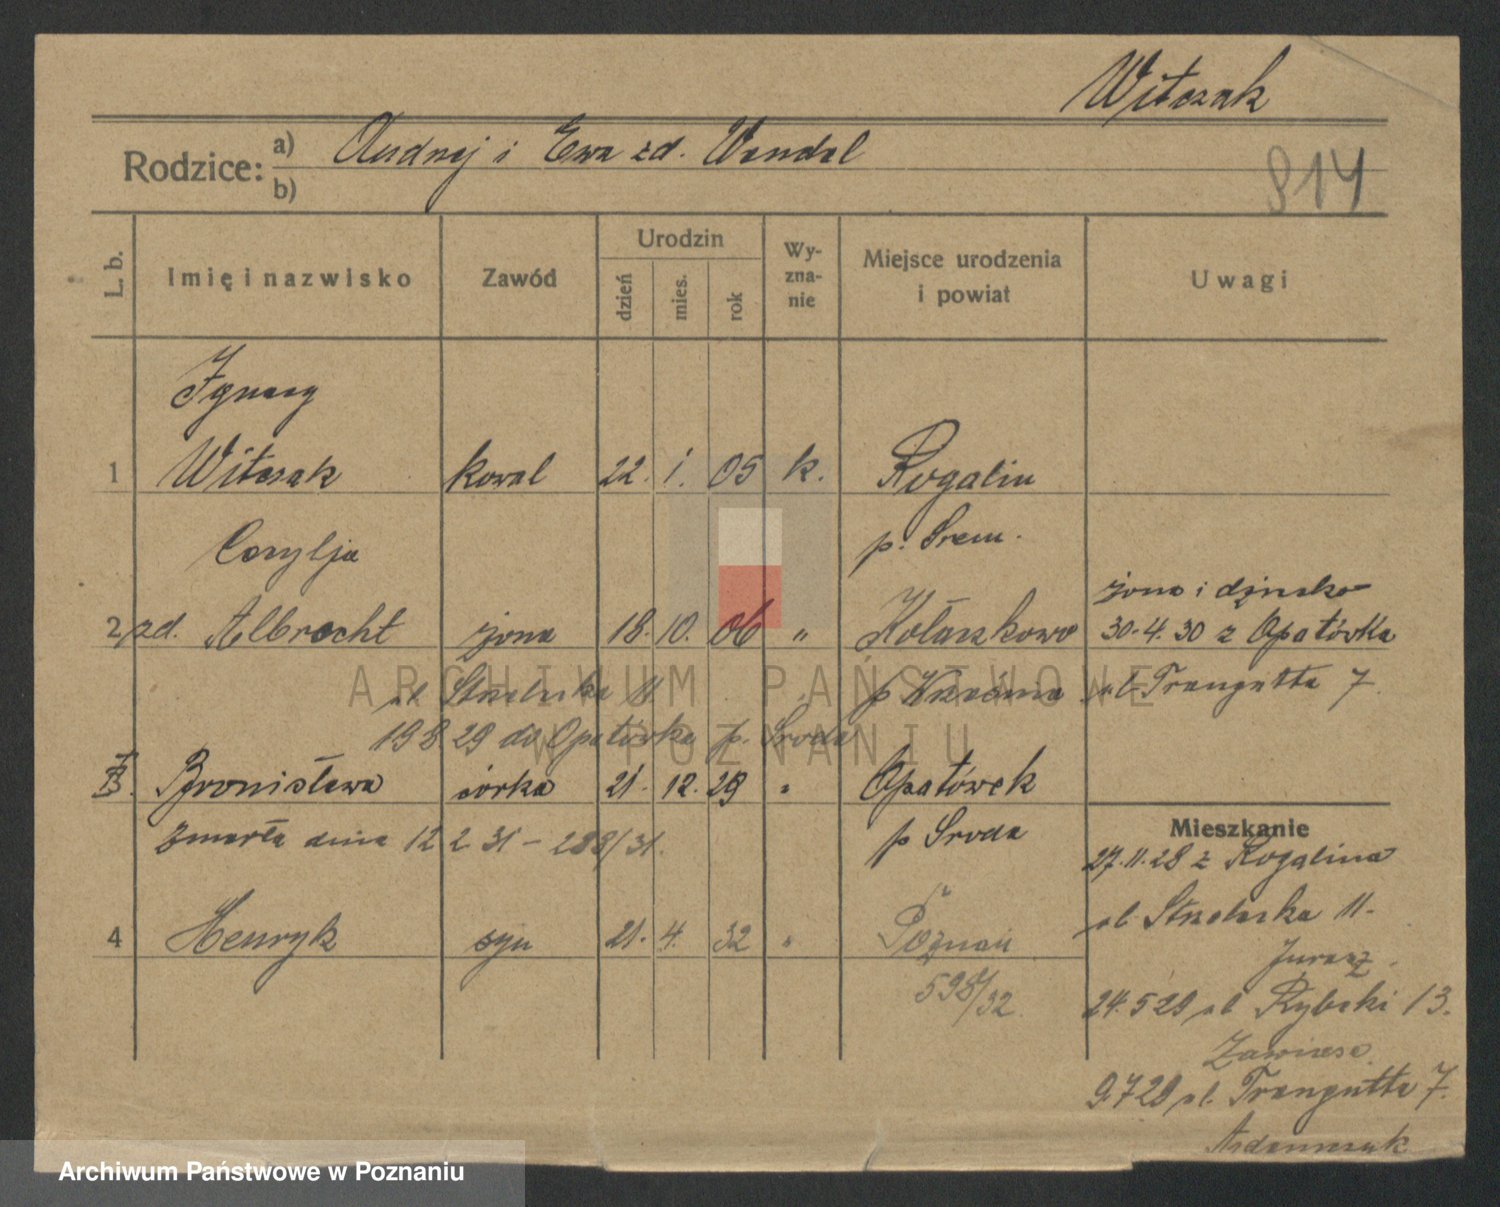 Witczak
Rodzice: a) Andrzej i Ewa zd. Wendel
b)
914
L. b.
Imię i nazwisko
Zawód
Urodzin
dzień
mies.
rok
Wy-
zna-
nie
Miejsce urodzenia
i powiat
Uwagi
Ignacy
1 Witczak kowal 22. 1. 05 k. Rogalin
Cecylja p. Śrem.
2 zd. Albrecht żona 18. 10. 06 " Kołaczkowo
żona i dziecko
30.4.30 z Opatówka
ul. Strzelecka 11 p Września ul. Traugutta 7
19 8 29 do Opatówka p. Środa
3. Bronisława córka 21. 12. 29 " Opatówek
zmarła dnia 12 2 31 – 288/31. p Środa
Mieszkanie
27.11.28 z Rogalina
ul. Strzelecka 11-
4 Henryk syn 21. 4. 32 " Poznań
598/32
24.5 29 ul Rybaki 13.
9.7 29 ul. Traugutta 7.
ARCHIWUM PAŃSTWOWE
W POZNANIU
Archiwum Państwowe w Poznaniu